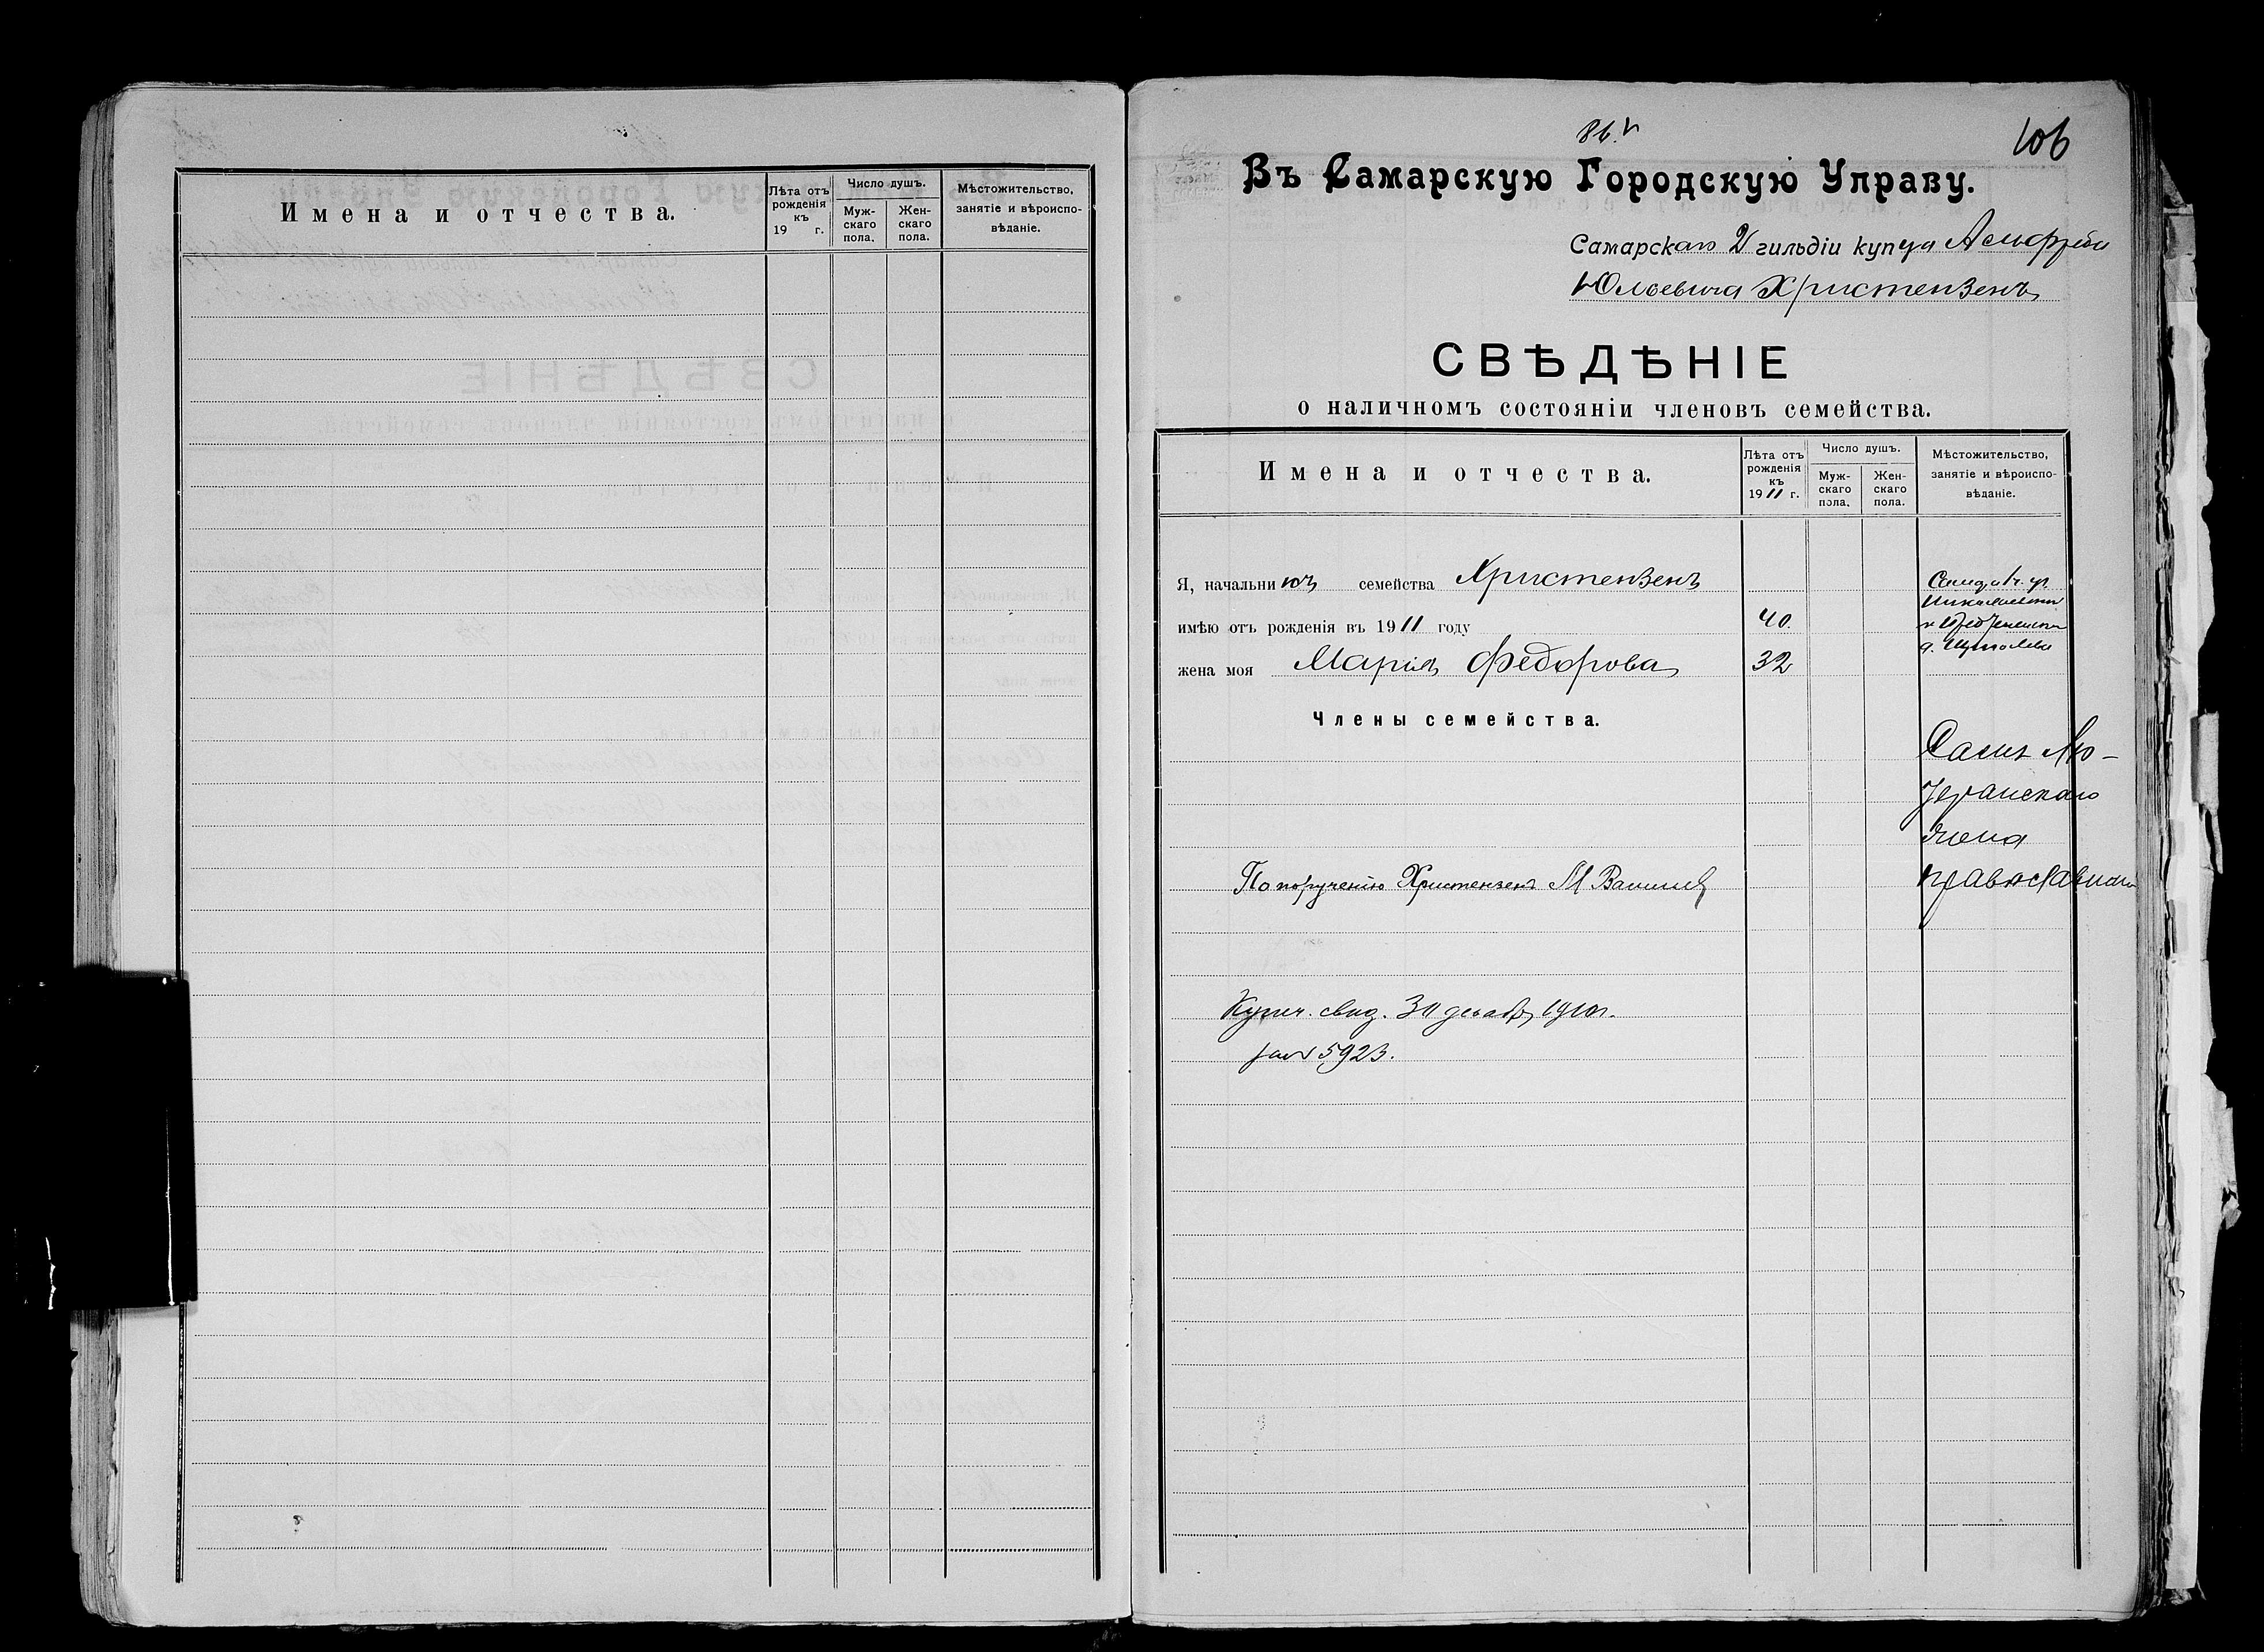 Имена и отчества.
Лѣта отъ рожденія къ 19 г.
Число душъ.
Мужскаго пола.
Женскаго пола.
Мѣстожительство, занятіе и вѣроисповѣданіе.
86.
106
Въ Самарскую Городскую Управу.
Самарскаго 2 гильдіи купца
Юльевича Христензенъ
СВѢДѢНІЕ
о наличномъ состояніи членовъ семейства.
Имена и отчества.
Лѣта отъ рожденія къ 1911 г.
Число душъ.
Мужскаго пола.
Женскаго пола.
Мѣстожительство, занятіе и вѣроисповѣданіе.
Я, начальникъ семейства Христензенъ
имѣю отъ рожденія въ 1911 году 40.
жена моя Марія Федорова 32
Члены семейства.
Самъ Лю-
теранскаго
жена
православнаго
По порученію Христензенъ М
Купеч. свид. 30 декабр 1910 г.
за № 5923.